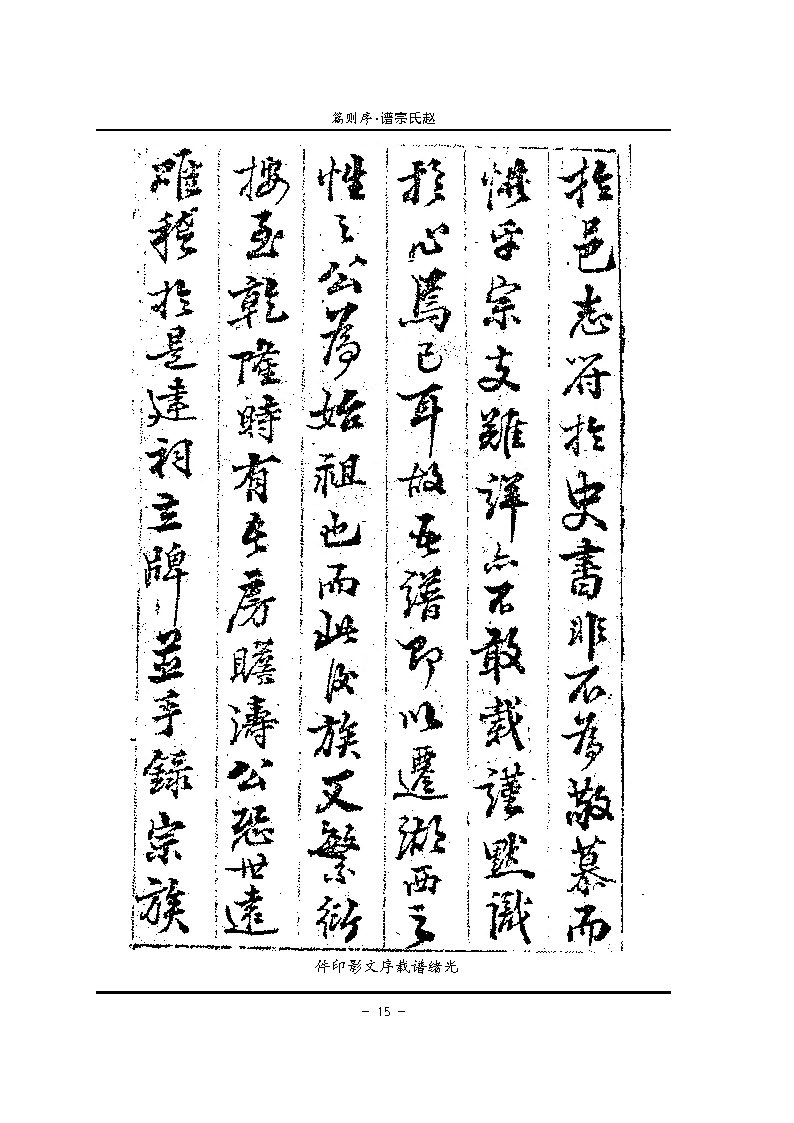 赵氏宗谱·序则篇
於邑志符於史書非不為敬慕而
乎宗支難詳亦不敢載謹默識
於心焉已耳故吾譜即以遷湖西之
性之公為始祖也而此後族又繁衍
按至乾隆時有長房瞻濤公恐世遠
難稽於是建祠立牌並手錄宗族
光绪谱载序文影印件
- 15 -